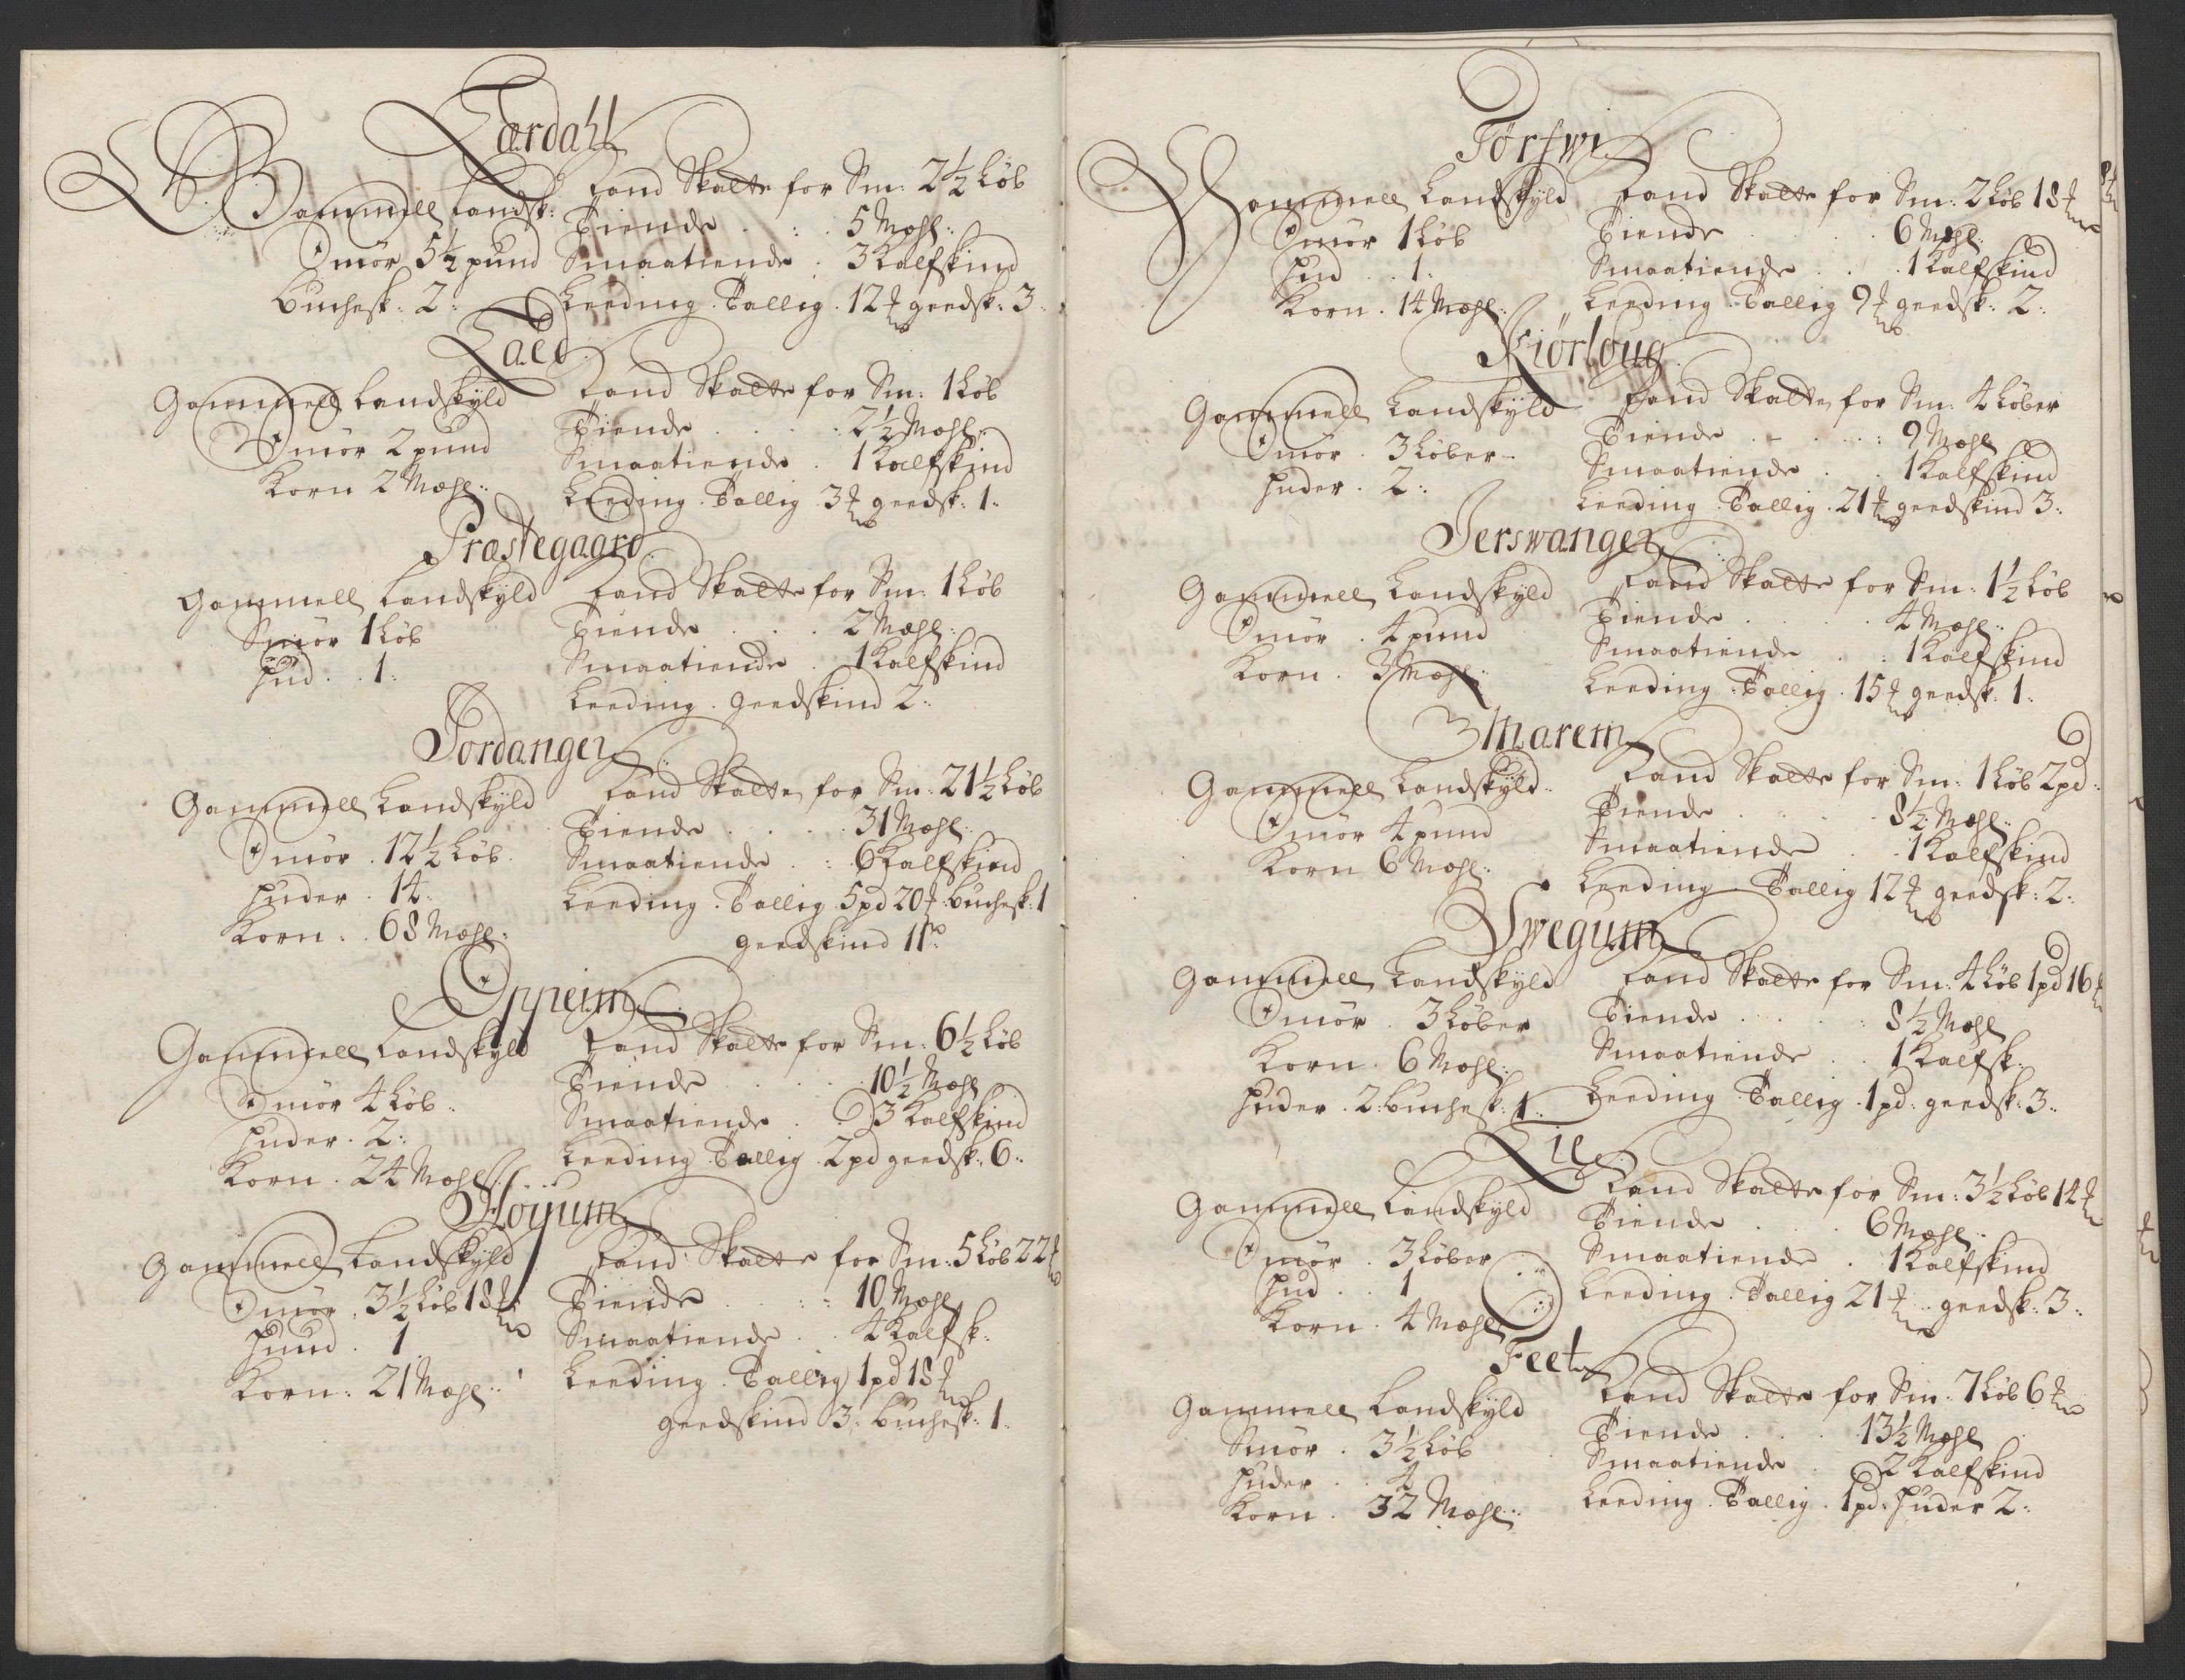 Lærdahl
Gammell Landsk: Land Skatte for Sm: 2½ Løb
Smør 5½ pund Tiende . . . 5 Mæhl:
Buchesk: 2: Smaatiende . 3 Kalfskind
Leeding. Tallig. 12 ℔ geedsk: 3.
Gammell Landskyld Land Skatte for Sm: 1 Løb
Smør 2 pund Tiende . . . 2½ Mæhl:
Korn 2 Mæhl: Smaatiende . 1 Kalfskind
Leeding. Tallig 3 ℔ geedsk: 1:
Præstegaard
Gammell Landskyld Land Skatte for Sm: 1 Løb
Smør 1 Løb Tiende . . . 2 Mæhl:
Hud . . 1: Smaatiende . 1 Kalfskind
Leeding. geedskind 2:
Jordanger
Gammell Landskyld Land Skatte for Sm: 21½ Løb
Smør . 12½ Løb. Tiende . . . 31 Mæhl:
Huder . 14. Smaatiende . 6 Kalfskind
Korn . 68 Mæhl: Leeding. Tallig. 5 pd 20 ℔ Buchesk: 1
geedskind 11
Oppeim
Gammell Landskyld Land Skatte for Sm: 6½ Løb
Smør 4 Løb. Tiende . . . 10½ Mæhl
Huder . 2: Smaatiende . 3 Kalfskind
Korn . 24 Mæhl: Leeding. Tallig. 2 pd geedsk: 6:
Høyum
Gammell Landskyld Land Skatte for Sm: 5 Løb 22 ℔
Smør . 3½ Løb 18 ℔ Tiende . . . 10 Mæhl
Huud . 1 Smaatiende . 4 Kalfsk:
Korn: 21 Mæhl: Leeding. Tallig 1 pd 18 ℔
geedskind 3: Buchesk: 1:
Tørswi
Gammell Landskyld Land Skatte for Sm: 2 Løb 18 ℔
Smør 1 Løb Tiende . . . 6 Mæhl
Hud . . 1: Smaatiende . . 1 Kalfskind
Korn . 14 Mæhl: Leeding. Tallig 9 ℔ geedsk: 2:
Kiørloug
Gammell Landskyld Land Skatte for Sm: 4 Løber
Smør . 3 Løber Tiende . . . 9 Mæhl
Huder . 2: Smaatiende . . 1 Kalfskind
Leeding. Tallig. 21 ℔ geedskind 3:
Jerswanger
Gammell Landskyld Land Skatte for Sm: 1½ Løb
Smør . 4 pund Tiende . . . 4 Mæhl:
Korn . 3 Mæhl: Smaatiende . . 1 Kalfskind
Leeding. Tallig. 15 ℔ geedsk: 1:
Marem
Gammell Landskyld Land Skatte for Sm: 1 Løb 2 pd:
Smør 4 pund Tiende . . . 8½ Mæhl:
Korn 6 Mæhl: Smaatiende . . 1 Kalfskind
Leeding Tallig 12 ℔ geedsk: 2:
Swegum
Gammell Landskyld Land Skatte for Sm: 4 Løb 1 pd 16 ℔
Smør . 3 Løber Tiende . . . 8½ Mæhl
Korn . 6 Mæhl: Smaatiende . . 1 Kalfsk:
Huder . 2: Buchesk: 1: Leeding Tallig. 1 pd: geedsk: 3:
Lie
Gammell Landskyld Land Skatte for Sm: 3½ Løb 14 ℔
Smør . 3 Løber Tiende . . . 6 Mæhl:
Hud . . 1 Smaatiende . 1 Kalfskind
Korn . 4 Mæhl Leeding. Tallig 21 ℔ . geedsk: 3:
Feet
Gammell Landskyld Land Skatte for Sm: 7 Løb 6 ℔
Smør . 3½ Løb Tiende . . . 13½ Mæhl
Huder . . 4 Smaatiende . 2 Kalfskind
Korn . 32 Mæhl: Leeding. Tallig. 1 pd: Huder 2: